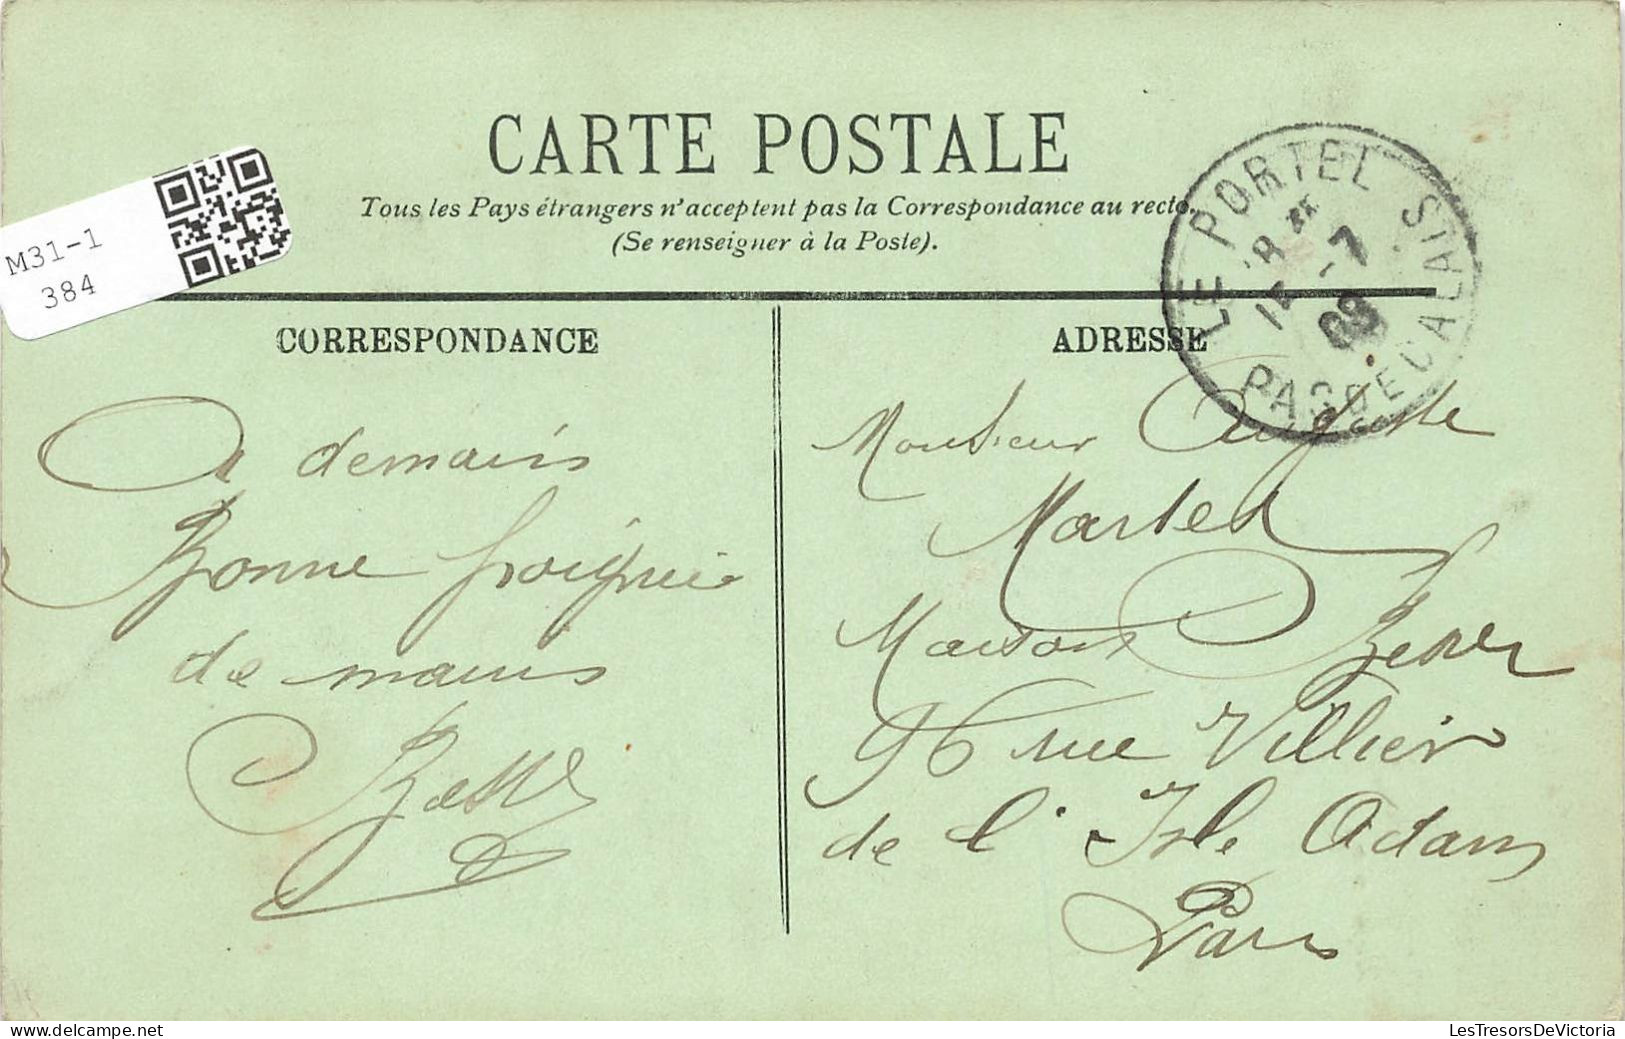 CARTE POSTALE
Tous les Pays étrangers n'acceptent pas la Correspondance au recto.
(Se renseigner à la Poste).
M31-1
384
LE PORTEL
PAS DE CALAIS
-7
09
CORRESPONDANCE
ADRESSE
A demains
Bonne poignée
de mains
Monsieur Auguste
Martel
Maison
96 rue Villier
de l'Isle Adam
Paris
LesTresorsDeVictoria